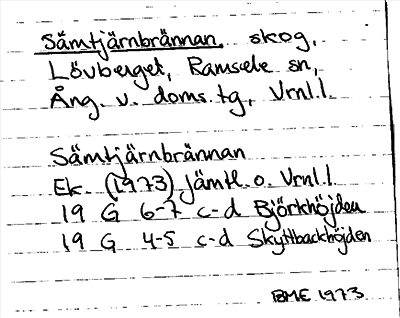 Sämtjärnbrännan, skog,
Lövberget, Ramsele sn,
Ång. v. doms.tg, Vrnl.l.
Sämtjärnbrännan
Ek. (1973) Jämtl. o. Vrnl.l.
19 G 6-7 c-d Björkhöjden
19 G 4-5 c-d Skyttbackhöjden
BME 1973